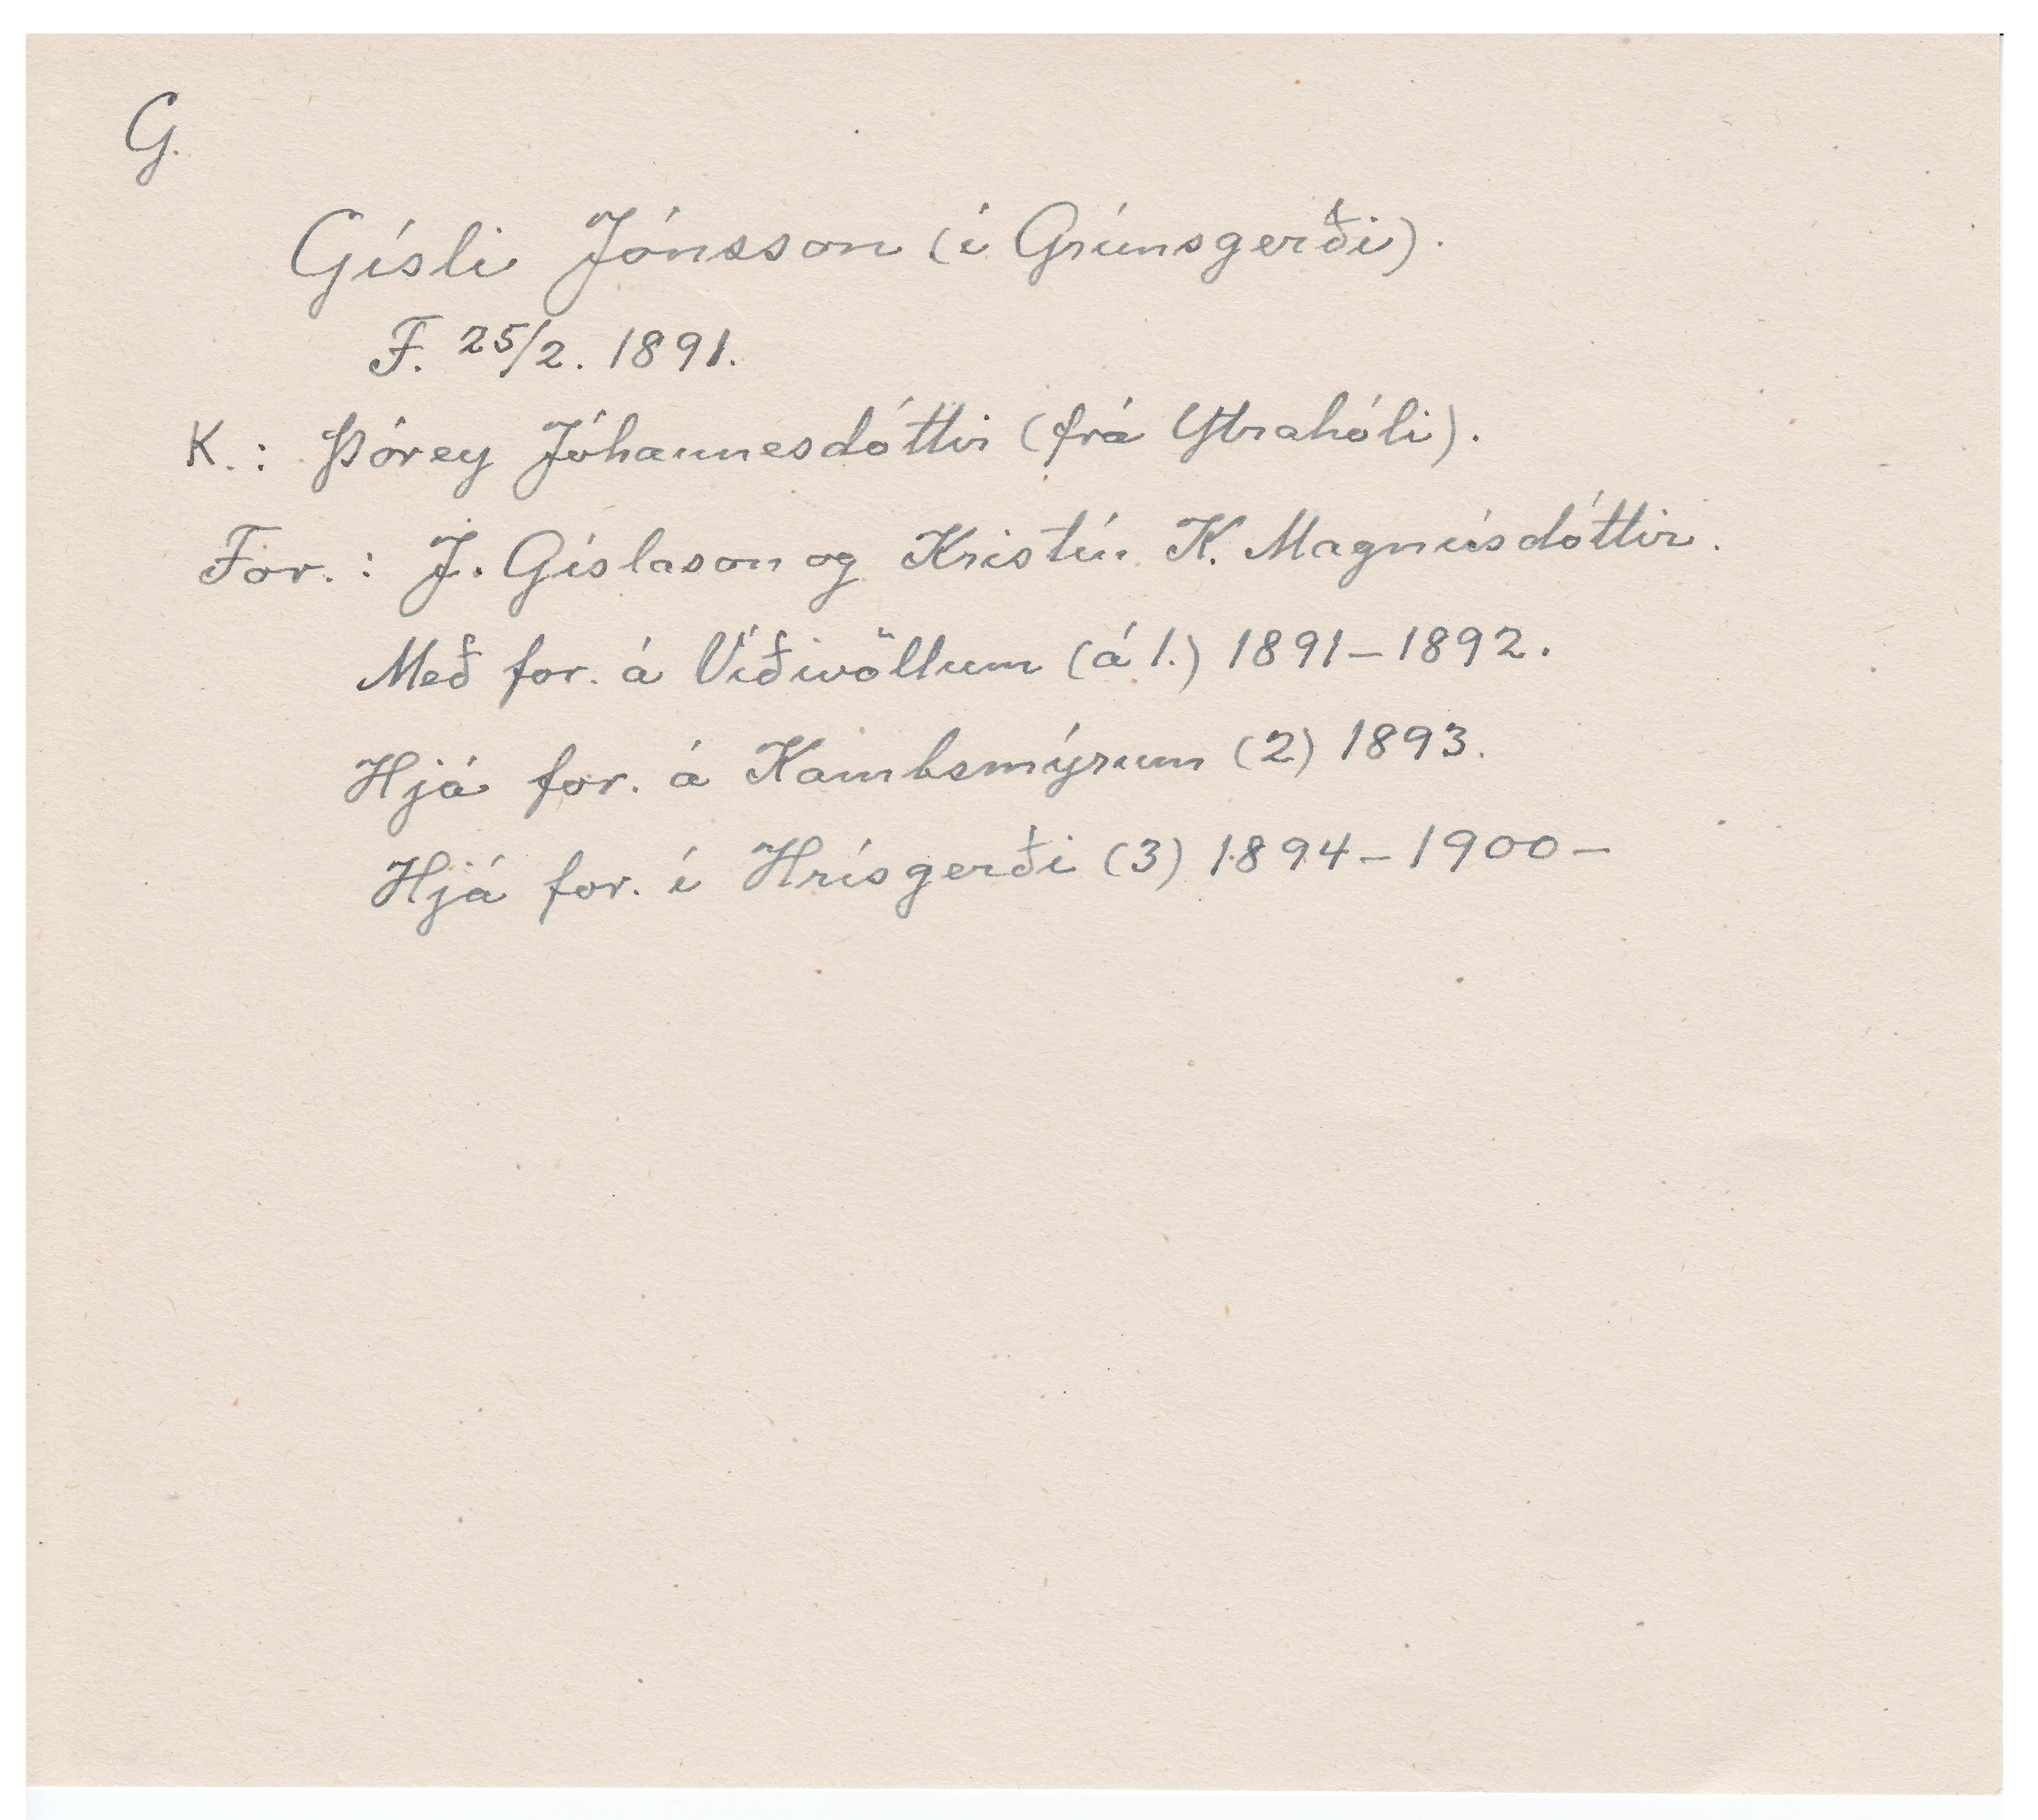 G.
Gísli Jónsson (í Grímsgerði).
F. 25/2. 1891.
K.: Þórey Jóhannesdóttir (frá Ytrahóli).
For.: J. Gíslason og Kristín K. Magnúsdóttir.
Með for. á Víðivöllum (á 1.) 1891–1892.
Hjá for. á Kambsmýrum (2) 1893.
Hjá for. í Hrísgerði (3) 1894–1900–